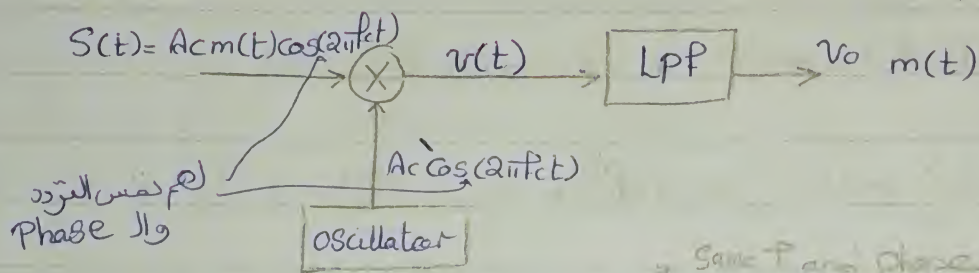 S(t)= Acm(t)cos(2πfct)
X
v(t)
Lpf
Vo m(t)
Ac`cos(2πfct)
لهم نفس التردد
والـ Phase
oscillator
Same f and Phase